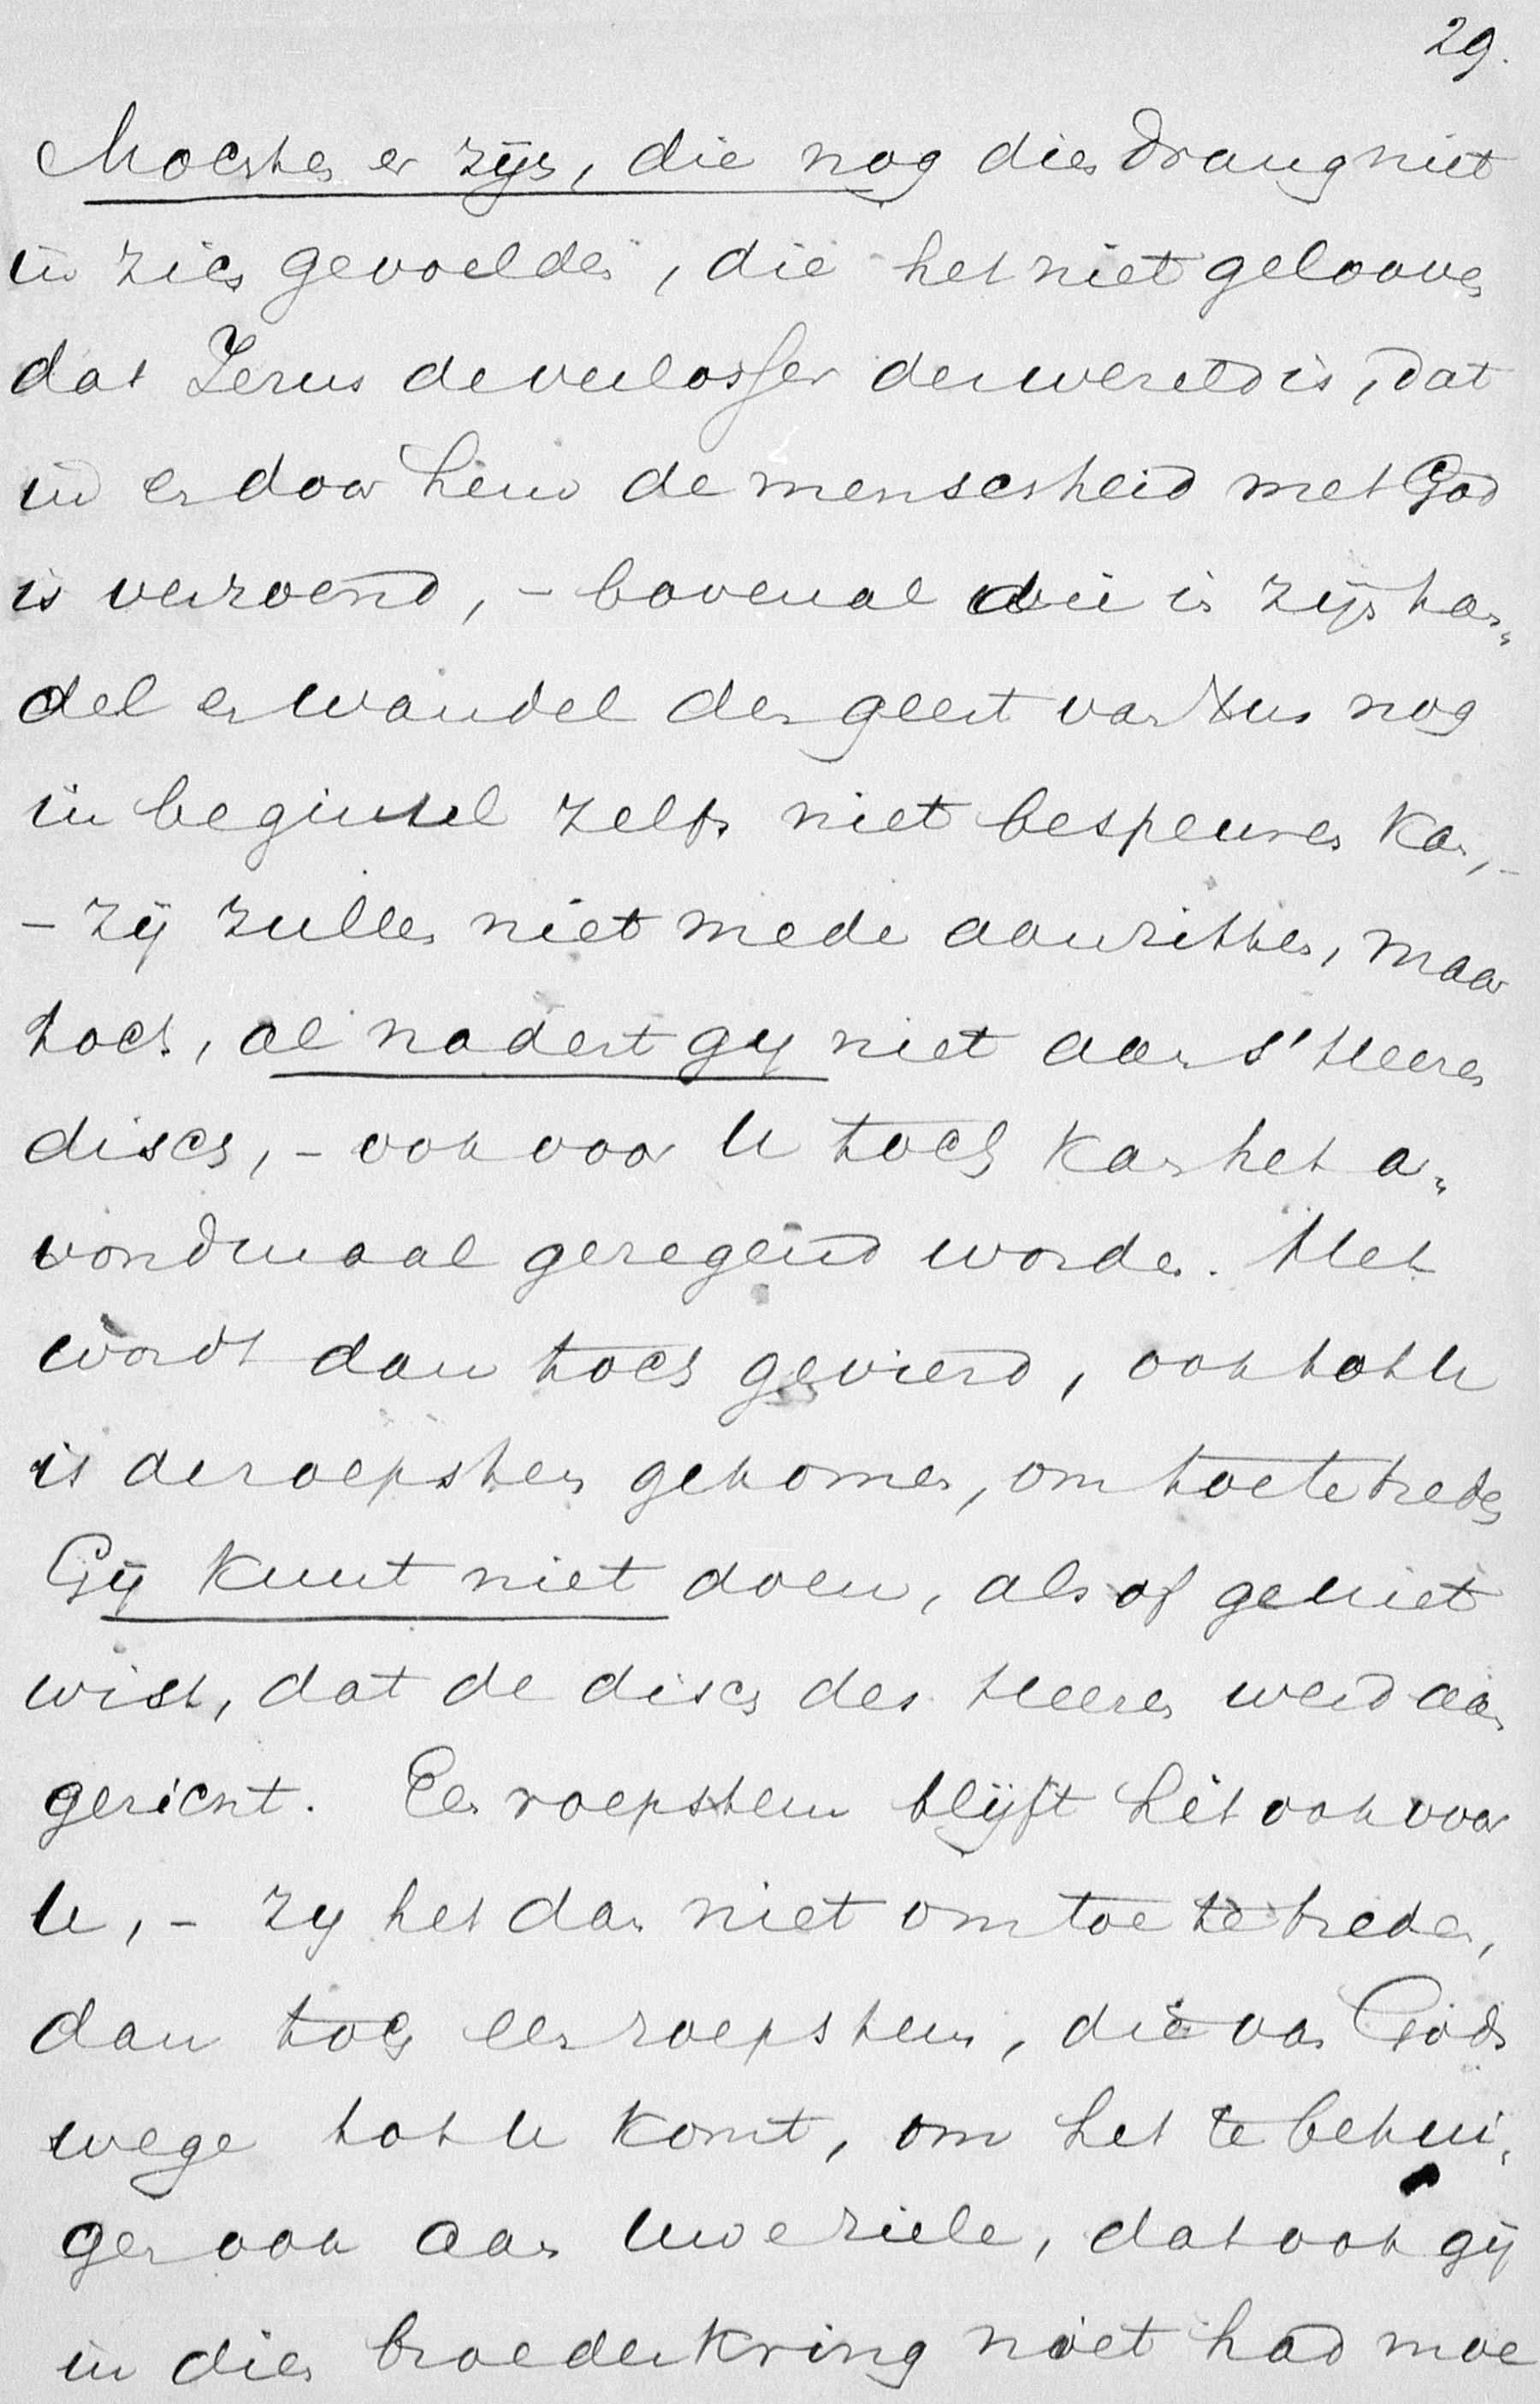 29.
Mochten er zijn, die nog dien drang niet
in zich gevoelden, die het niet gelooven
dat Jezus de verlosser der wereld is, dat
in en door hem de menschheid met God
is verzoend, - bovenal wie in zijn han„
del en wandel den geest van Xus nog
in beginsel zelfs niet bespeuren kan, -
- zij zullen niet mede aanzitten, maar
toch, al nadert gij niet aan s' Heeren
disch, - ook voor U toch kan het a„
vondmaal gezegend worden. Het
wordt dan toch gevierd, ook tot U
is de roepstem gekomen, om toe te treden
Gij kunt niet doen, als of ge niet
wist, dat de disch des Heeren werd aan
gericht. Een roepstem blijft het ook voor
U, - zij het dan niet om toe te treden,
dan toch een roepstem, die van Gods
wege tot U komt, om het te betui„
gen ook aan Uwe ziele, dat ook gij
in dien broederkring niet had moe